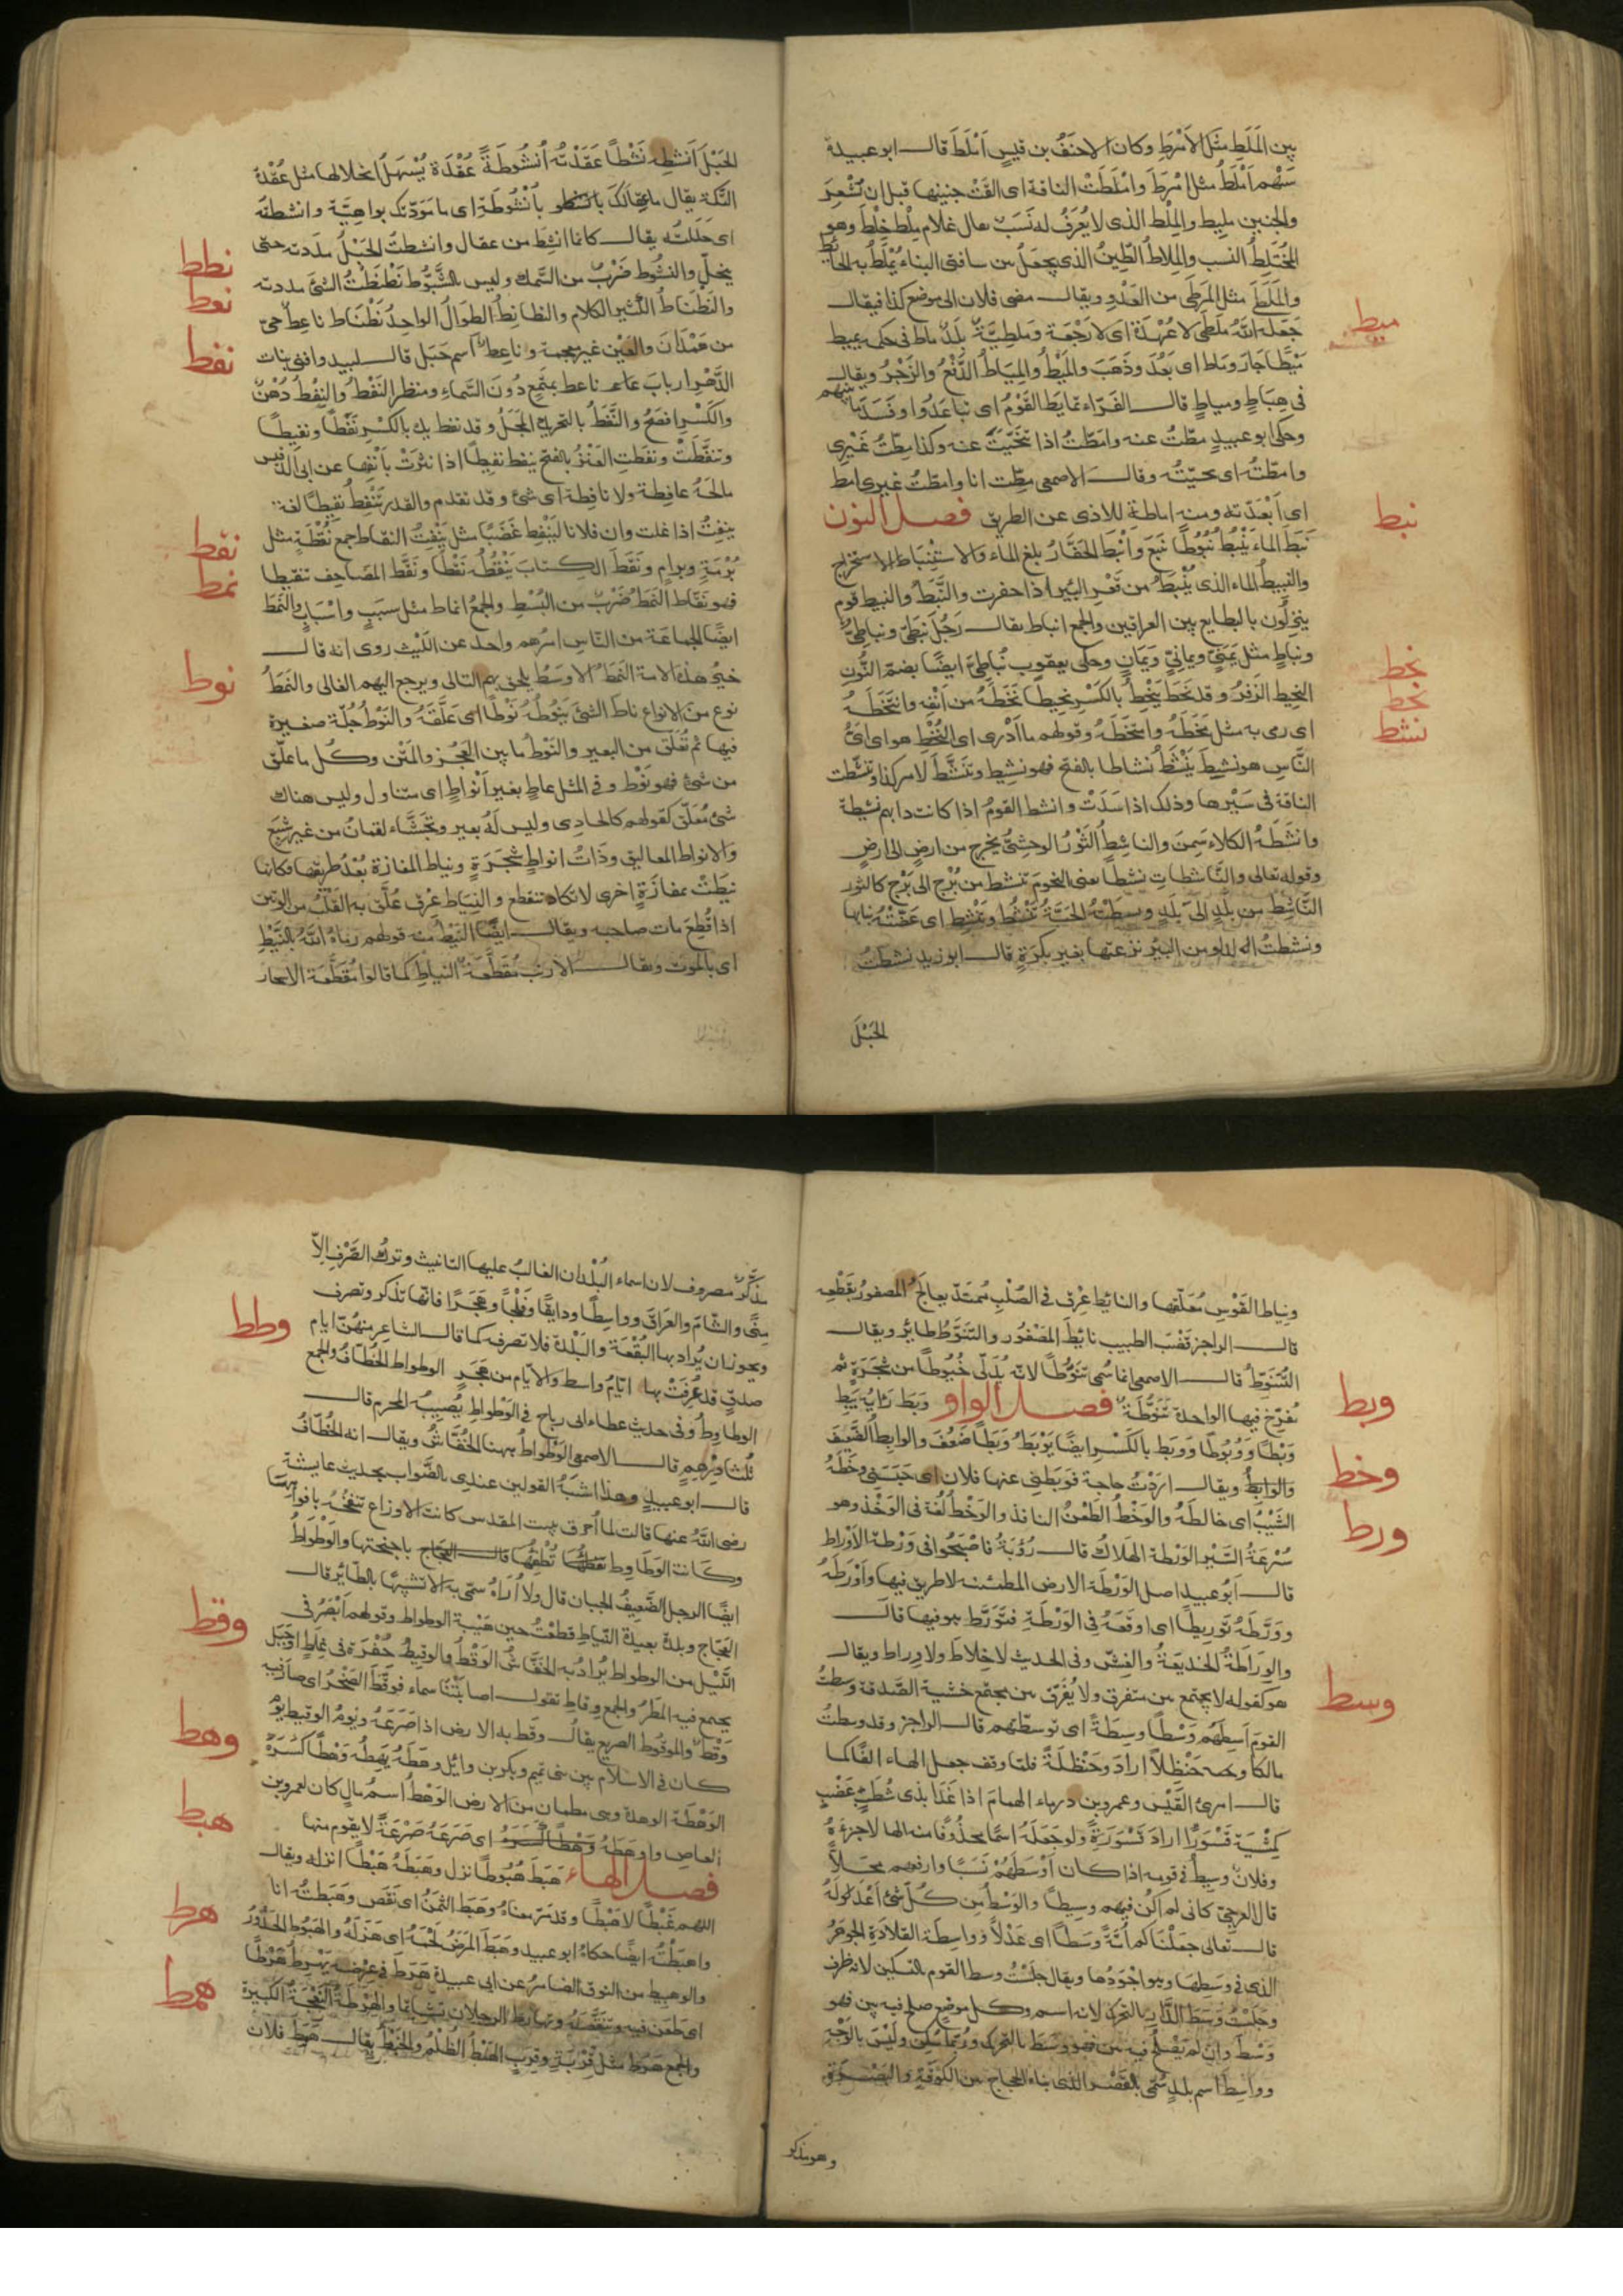 بين المَلَطِ مثل الأمْرَطِ وكان الاحنَفُ بن قيسٍ أمْلَطَ قال ابو عبيدة
سَهْم أمْلَطُ مثل امْرَطَ وامْلَطَتْ الناقة اى القَتْ جنينها قبل ان تُشْعِرَ
والجنين مليط والمِلْط الذى لا يُعرَفُ له نَسَبٌ يقال غلام مِلْط خِلْط وهو
المُخْتَلِطُ النسب والمِلاطُ الطِينُ الذى يجعَلُ بين سافتى البناء يُمْلَطُ به الحايط
والمَلَطَى مثل المَرَطَى من العَدْوِ ويقال مضى فلان الى موضع كذا فيقال
جَعَله اللّٰهُ مَلَطَى لا عُهْدَةَ اى لا رَجْعَة ومَلَطِيَّةُ بلَدٌ ماط فى حكمه يميط
ميط
مَيْطًا جارَ وماط اى بَعُدَ وذَهَبَ والمَيْطُ والمِيَاطُ الدَّفْعُ والزَجْرُ ويقال
فى هِيَاطٍ ومياطٍ قال الفرّاء تمايَطَ القَوْمُ اى تباعَدُوا وفَسَدَ ما بينهم
وحكى ابو عبيدٍ مِطْتُ عنه وامَطْتُ اذا تنحَّيْتَ عنه وكذا مِطْتُ غَيْرِى
وامطْتُه اى نحيّتُه وقال الاصمعى مِطْت انا وامطْتُ غيرى امط
اى أبْعَدْته ومنه اماطة للاذى عن الطريق فصل النون
نبط
نَبَطَ الماء يَنْبُطُ نُبُوطًا نَبَعَ وأنْبَطَ الحَفَّارُ بلغ الماء والاستِنْبَاط الاستخراج
والنبيطُ الماء الذى يُنْبَطُ من قَعْرِ البئر اذا حفرت والنَّبَطُ والنبيط قوم
ينزِلُون بالبطايح بين العراقين والجمع انباط يقال رَجُل نبَطىّ ونباطِىٌّ
ونباطٍ مثل يَمَنِىّ ويمانِىّ ويَمَانٍ وحكى يعقوب نُبَاطِىّ ايضًا بضم النُّون
نحط
النحِيط الزَفِيرُ وقد نَحَطَ يَنْحِطُ بالكَسْرِ نحيطًا نَخَطَهُ من أنْفِه وانتَخَطَهُ
نخط
اى رمى به مثل مَخَطَهُ وامتخَطَهُ وقولهم ما أدْرِى اى النُّخْطِ هو اى اىُّ
نشط
النَّاسِ هو نشِيطَ يَنْشَطُ نشاطا بالفتح فهو نشِيط وتنَشَّطَ لامر كذا وتنشّطت
الناقة فى سَيْرِها وذلك اذا سَدَتْ وانشط القومُ اذا كانت دابهم نشِيطة
وانشَطَهُ الكلاء سَمنَ والناشِطُ الثَوْرُ الوحشىُّ يخرج من ارضٍ الى ارضٍ
وقوله تعالى والنَّاشطاتِ نشطًا يعنى النجومَ تنشط من بُرْج الى بُرْج كالثور
النَّاشِطِ من بلَدٍ الى بَلَدٍ ونشطَتْهُ الحيَّةُ تَنْشُطُ وتَنْشِط اى عَضَّتْهُ بنابها
ونشطتُ الدلو من البئر نزعتها بغير بكرَةٍ قال ابو زيد نشطتُ
الحَبْلَ
الحَبْلَ أنشِطه نَشْطًا عَقَدْتُهُ أُنشُوطَةً عُقْدَة يُسْهلُ انحلالها مثل عُقْدَة
التّكة يقال ما عِقالكَ بأنْشُوطَةٍ اى ما مَوَدّتك بواهِيَة وانشطته
اى حَلَلتُه يقال كانما انشِطَ من عقال وانشطتُ الحَبْلُ مدَدته حتى
نطط
ينحلّ والنشُوط ضَرْبٌ من السَّمك وليس بالشَّبُّوط نَطْنَطْتُ الشئ مددته
نعط
والنَطْنَاطُ الكثير الكلام والنظانِطُ الطِوَالُ الواحِدُ نَطْنَاط ناعِطٌ حىّ
من هَمْدَانَ والعَيْن غير معجمة وناعِط اسم جَبَل قال لبيد وافنى بنات
نفط
الدَّهْرِ ارباب ناعط بمستَمِعٍ دُونَ السَّمَاءِ ومنظر النَفْطُ والنِفْطُ دُهْنٌ
والكَسْرِ افصَحُ والنَّفَطُ بالتحريك المَجَلُ وقد نفط يك بالكَسْرِ نَفَطًا ونفِيطًا
وتنفَّطَتْ ونفَطَتِ العَنْزُ بالفتح ينفط نفِيطًا اذا نثرَتْ بأنْفِها عن ابى الدقيس
مالهُ عافِطة ولا نافِطة اى شئ وقد تقدم والقدر تَنْفِطُ نفِيطًا لغة
نقط
ينفِتُ اذا غلت وان فلانا ليَنْفِط غَضَبًا مثل يَنْفِتُ النقاط جمع نُقْطَةٍ مثل
بُرْمَةٍ وبِرامٍ ونَقَطَ الكِتابَ يَنْقُطُهُ نَقْطًا ونَقَّطَ المصَاحِف تنقيطا
نمط
فهو نَقّاط النَمَطُ ضَرْبٌ من البُسُطِ والجمعُ انماط مثل سبَبٍ واسْبَابٍ والنَمَطُ
ايضًا الجماعَة من النّاس امرهم واحد عن اللَّيْث روى انه قال
خير هذه الامة النمَطُ الاوسَطُ يلحق بهم التالى ويرجع اليهم الغالى والنَمَطُ
نوط
نوع من الانواع ناط الشئ يَنُوطُهُ نَوْطًا اى عَلَّقَهُ والنَوْطُ جُلّة صغيرة
فيها تم تُعَلّق من البعير والنَوْطُ ما بين العَجُز والمَتْن وكُل ما علّق
من شئ فهو نَوْط وفى المثل عاطٍ بغير أنْواطٍ اى متناول وليس هناك
شئ مُعَلّق كقولهم كالحادى وليس لَهُ بعير وتَجَشَّاء لقمانُ من غير شِبَع
والانواط المعاليق وذاتُ انواطٍ شجَرَة ونياط المفازة بُعْدُ طريقها فكانها
نيطَتْ بمفازَة اخرى لا تكاد تنقطع والنِيَاط عِرْق عُلّق به القَلْبُ من الوتين
اذا قُطِعَ مات صاحبه ويقال ايضًا النَيْطُ منه قولهم رماهُ اللّٰهُ بالنَيْطِ
اى بالموت ويقال للارنب مُقَطَّعَةُ النياطِ كما قالوا مُقَطَّعَة الاسحار
ونِياط القَوْسِ مُعَلّقها والنائِط عِرْق فى الصُلْبِ مُمتَدّ يعالَجُ المصفور بقَطْعِه
قال الراجز قَضْبَ الطبيب نائِطَ المصْفُور والتنَوّطُ طائِر ويقال
التُنَوّطُ قال الاصمعى انما سُمى تنَوّطًا لانه يُدَلّى خُيُوطًا من شجَرَةٍ ثم
يُفَرّخ فيها الواحدة تَنَوّطَة فصل الواو وبَطَ رَايُهُ يَبِطُ
وبط
وَبْطًا ووُبُوطًا ووَبِط بالكَسْرِ ايضًا يَوْبَطُ وَبَطًا ضَعُفَ والوابِطُ الضَّعِيفُ
والوَابِطُ ويقال ارَدْتُ حاجة فوَبَطَنِى عنها فلان اى حَبَسَنِى وخَطَهُ
وخط
الشَيْبُ اى خالطَهُ والوَخْطُ الطَعْنُ النافذ والوَخْطُ لُغَة فى الوَخْذ وهو
ورط
سُرْعَةُ السَّيْرِ الوَرْطة الهَلَاكُ قال رُؤبَةُ فاصْبَحُوا فى وَرْطَة الأوْرَاط
قال أبُو عبيد اصل الوَرْطَة الارض المطمئنة لا طريق فيها وأوْرَطَهُ
ووَرَّطَهُ توريطًا اى اوقَعَهُ فى الوَرْطَةِ فتَوَرّط هو فيها قال
والوِرَاطَةُ الخديعَةُ والغِشّ وفى الحديث لا خِلَاطَ ولا وراط ويقال
هو كقوله لا يجتمع بين متفرق ولا يُفَرّق بين مجتمع خشية الصَّدقة وسطتُ
وسط
القومَ أسِطُهُم وَسْطًا وسِطَةً اى توسّطتهم قال الراجز وقد وسطتُ
مالكًا وحنظلا اراد وحَنْظلَةَ فلمّا وقف جعل الهاء الفًا كما
قال امرئ القَيْس وعمرو بن درماء الهمامَ اذا غَدَا بذى شُطَبٍ عَضْبٍ
كمِشْيَةِ قَسْوَرَا اراد قَسْوَرَةَ ولو جَعَلَهُ اسمًا محذُوفًا منه الها لاجراهُ
وفلان وسِيطٌ فى قومه اذا كان أوْسَطَهُمْ نسَبًا وارفعهم محَلّاً
قال العرجىّ كانى لم أكُن فيهم وسِيطًا والوَسَطُ من كُلّ شئ أعْدَلُهُ
قال تعالى جعَلْنَاكم أُمّةً وَسَطًا اى عَدْلاً وواسِطَة القلادَةِ الجوهَرُ
الذى فى وَسَطِهَا وهو اجْوَدُها ويقال جلَسْتُ وسط القوم بالتسكين لانه ظرف
وجلَسْتُ وسَطَ الدّارِ بالتحريك لانه اسم وكل موضعٍ صلح فيه بين فهو
وَسْط وان لم يَصْلُح فيه بين فهو وَسَط بالتحريك وربّما سُكّن وليْسَ بالوَجْهِ
وواسِط اسم بلدٍ سُمّى بالقصْر الذى بناهُ الحجاج بين الكوفة والبصرة
وهو مذكر
مذَكّر مصروف لان اسماء البُلْدان الغالبُ عليها التانيث وترك الصّرْفِ الّا
مِنًى والشّامَ والعراقَ وواسِطًا ودابِقًا وفَلْجًا وهَجَرًا فانّها تذكر وتصرف
ويجوز ان يُراد بها البُقْعَة والبَلْدَة فلا تصرفه كما قال الشاعر منهُنّ ايام
وطط
صدقٍ قد عُرِفَتْ بها ايّامُ واسط والايّام من هَجَرِ الوطواط الخُطّافُ والجمع
الوطاوِطُ وفى حديث عطاء ابى رباح فى الوَطْواطِ يُصِيبُه المحرم قال
ثُلثا دِرْهمٍ قال الاصمعى الوَطْوَاطُ ههنا الخُفّاشُ ويقال انه الخُطّافُ
قال ابو عبيدٍ وهذا اشبَهُ القولين عندى بالصَّواب بحديث عايشة
رضى اللّٰهُ عنها قالت لما أُحرق بيت المقدس كانت الاوزاغ تنفُخُه بافواهها
وكانت الوَطَاوِط تُطْفِئُها باجنحتها والوَطْوَاطُ
ايضًا الرجل الضَّعِيفُ الجبان قال ولا أُرَاهُ سمّى به الا تشبِيهًا بالطّائِر قال
العجّاج وبلدةٍ بعيدة النِيَاطِ قطعْتُ حين هَيْبَة الوطواط وقولهم أبْصَرُ فى
وقط
اللَّيْل من الوطواط يُرادُ به الخُفّاشُ الوَقْطُ والوقِيطُ حُفْرَة فى غِلَظٍ او جَبَل
يجتمع فيه المَطَرُ والجمع وِقاط تقول اصابتْنَا سماء فوقَّطَ الصَّخْرُ اى صار فيه
وَقْط والمَوْقُوطُ الصريع يقال وقَط به الارض اذا صَرَعَهُ ويومُ الوقيط يَوْمٌ
وهط
كان فى الاسلام بين بنى تميم وبكر بن وائل وهَطَهُ يَهِطُه وَهْطًا كسَرَهُ
الوَهْطَة الوهدة وهى مطمان من الارض الوَهْط اسمُ مالٍ كان لعمرو بن
العاص واوهَطَهُ اى صَرَعَهُ صَرْعَةً لا يقوم منها
هبط
فصل الهاء هَبَطَ هُبُوطًا نزل وهَبَطَهُ هَبْطًا انزله ويقال
اللهم غَبْطًا لا هَبْطًا وقد مرّ معناه وهَبَط الثمَنُ اى نقَص وهَبَطتُه انا
هرط
واهبَطْتُه ايضًا حكاهُ ابو عبيد وهبَطَ المرَضُ لحْمَهُ اى هَزَلَهُ والهَبُوط الحَدُورُ
والهبيط من النوق الضامِرُ عن ابى عبيدة هَرَط فى عِرْضِه يَهْرِطُ هَرْطًا
اى طعَن فيه وتنَقّصَهُ وتهارط الرجلان تشاتما والهِرْطَةُ النَعْجَة الكبيرة
همط
والجمع هِرَط مثل قِرْبةٍ وقِرَبٍ الهَمْطُ الظُلْمُ والخَبْطُ يقال هَمَط فلان